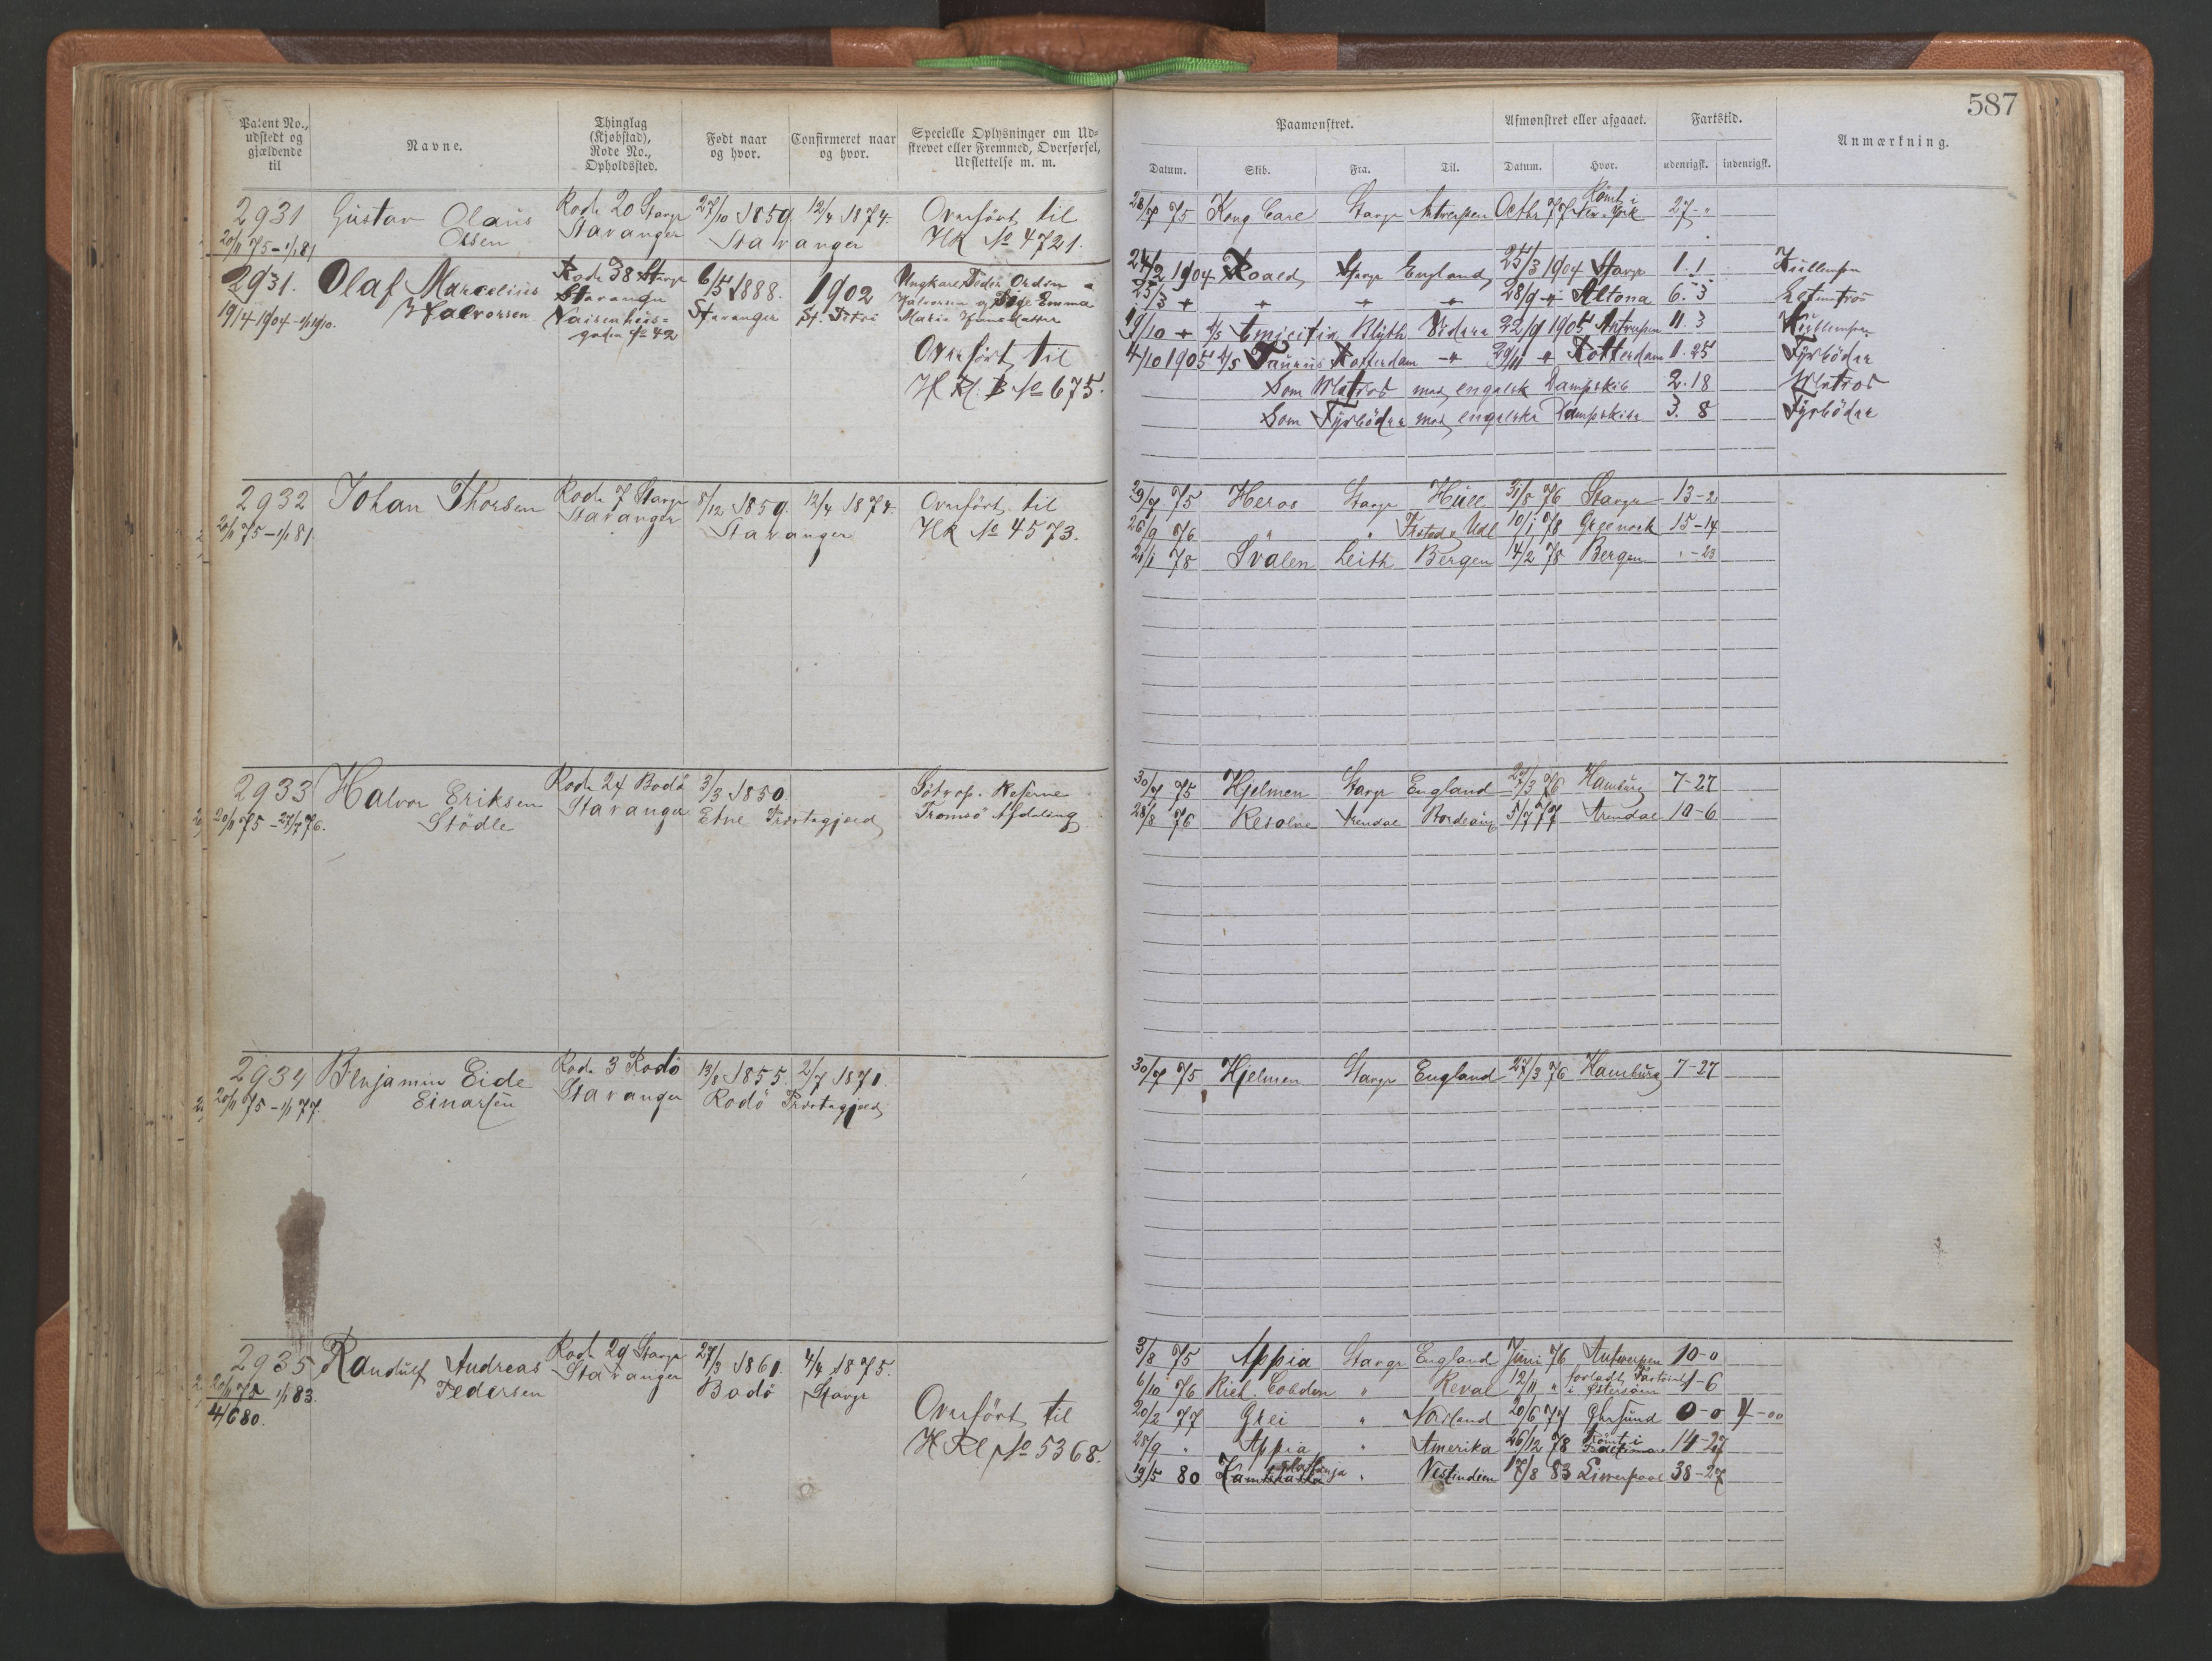 587
Patent No., udstedt og gjældende til
Navne.
Thinglag (Kjøbstad), Rode No., Opholdssted.
Født naar og hvor.
Confirmeret naar og hvor.
Specielle Oplysninger om Udstrevet eller Fremmed, Overførsel, Udslettelse m. m.
Paamønstret.
Afmønstret eller afgaaet.
Fartstid.
Anmærkning.
Datum. Skib. Fra. Til. Datum. Hvor. udenrigsk. indenrigsk.
2931 Gustav Olaus Rode 20 Stavgr 27/10 1859. 12/4 1874. Overført til
20/11 75 - 1/1 81 Olsen Stavanger Stavanger HR No 4721.
28/7 75 Kong Carl Stavgr Antwerpen Octbr 77 Rømt i New-York 27 - "
2931. Olaf Marcelius Rode 38 Stavgr 6/5 1888. 1902
19/4 1904 - 1/1 1910. Halvorsen Stavanger Stavanger St. Petri
gaden No 42
Halvorsen og Pige Emma
Overført til
H Rl. B No 675.
24/2 1904 Roald Stavgr England 25/3 1904 Stavgr 1. 1
25/3 " " " " 28/9 " Altona 6. 3
19/10 " Amicitia Blyth Videre 22/9 1905 Antwerpen 11. 3
4/10 1905 Taurus Rotterdam " 29/11 " Rotterdam 1. 25 Fyrböder
Som Matros med engelsk Dampskib 2. 18 Matros
Som Fyrböder med engelske Dampskibe 3. 8 Fyrböder
2932 Johan Thorsen Rode 7 Stavgr 8/12 1859. 12/4 1874. Overført til
20/11 75 - 1/1 81 Stavanger Stavanger HR No 4573.
29/7 75 Heros Stavgr Hull 31/8 76 Stavgr 13 - 2
26/9 76 " " Udl 10/1 78 Greenock 15 - 14
21/1 78 Svalen Leith Bergen 14/2 78 Bergen " - 23
2933 Halvor Eriksen Rode 24 Bodö 3/3 1850.
20/11 75 - 27/7 76. Stödle Stavanger Etne Præstegjeld Tromsö Afdeling
30/7 75 Hjelmen Stavgr England 27/3 76 Hamburg 7 - 27
28/8 76 Resolve Arendal Bordeaux 5/7 77 Arendal 10 - 6
2934 Benjamin Eide Rode 3 Rodö 13/8 1855. 2/7 1871.
20/11 75 - 1/1 77. Einarsen Stavanger Rodö Præstegjeld
30/7 75 Hjelmen Stavgr England 27/3 76 Hamburg 7 - 27
2935 Randulf Andreas Rode 29 Stavgr 27/3 1860. 4/4 1875.
20/11 75 1/1 83. Pedersen Stavanger Bodö Stavgr
4/6 80.
Overført til
H Rl No 5368.
3/8 75 Appia Stavgr England Juni 76 Antwerpen 10 - 0
6/10 76 Rich. Cobden " Reval 12/11 " forladt Fartøiet i Østersøen 1 - 6
20/2 77 Grei " Nordland 20/6 77 0 - 0 4 - 00
28/9 " Appia " Amerika 26/12 78 Rømt i Baltimore 14 - 27
19/5 80 " Vestindien 7/8 83 Liverpool 38 - 27